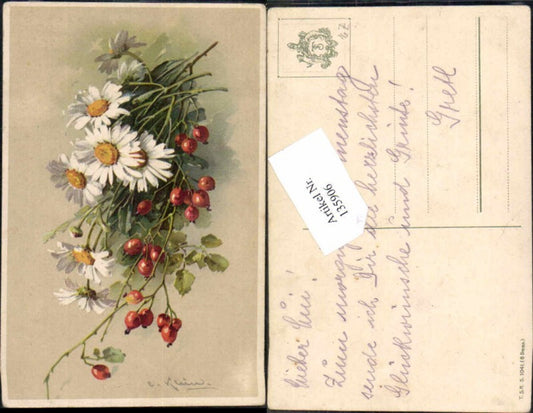 C. Klein.
67
Lieber Emi!
Zum morgigen menstag
sende ich Dir die herzlichsten
Glückwünsche und Grüsse!
Gretl
Artikel Nr.
135906
T. S. R. S. 1041. (6 Dess.)